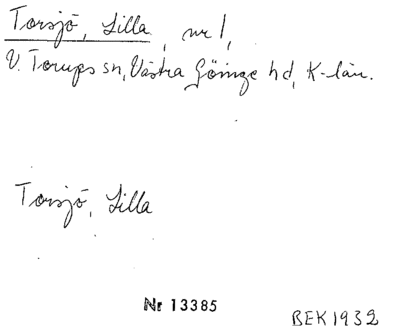 Torsjö, Lilla, nr 1,
V. Torups sn, Västra Göinge hd, K-län.
Torsjö, Lilla
Nr 13385
BEK 1932